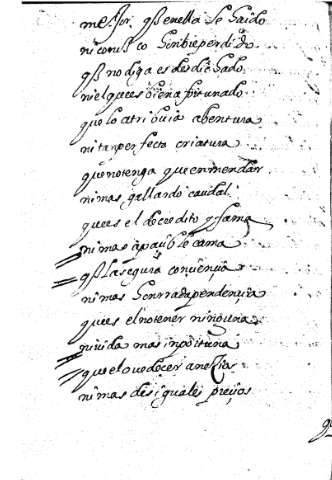 mejor, q̃ en ella se ha ido
ni con
q̃ no diga es desdichado
ni el que es buena fortunado
que lo atribuia a bentura
ni tan perfecta criatura
que no tenga que enmendar
ni mas gallardo caudal
que es el de credito y fama
ni mas apaçible cama
q̃ la segura conçiençia
ni mas honrrada pendençia
que es el no tener ninguna
ni vida mas inportuna
que el ovedecer a neçios
ni mas desiguales preçios